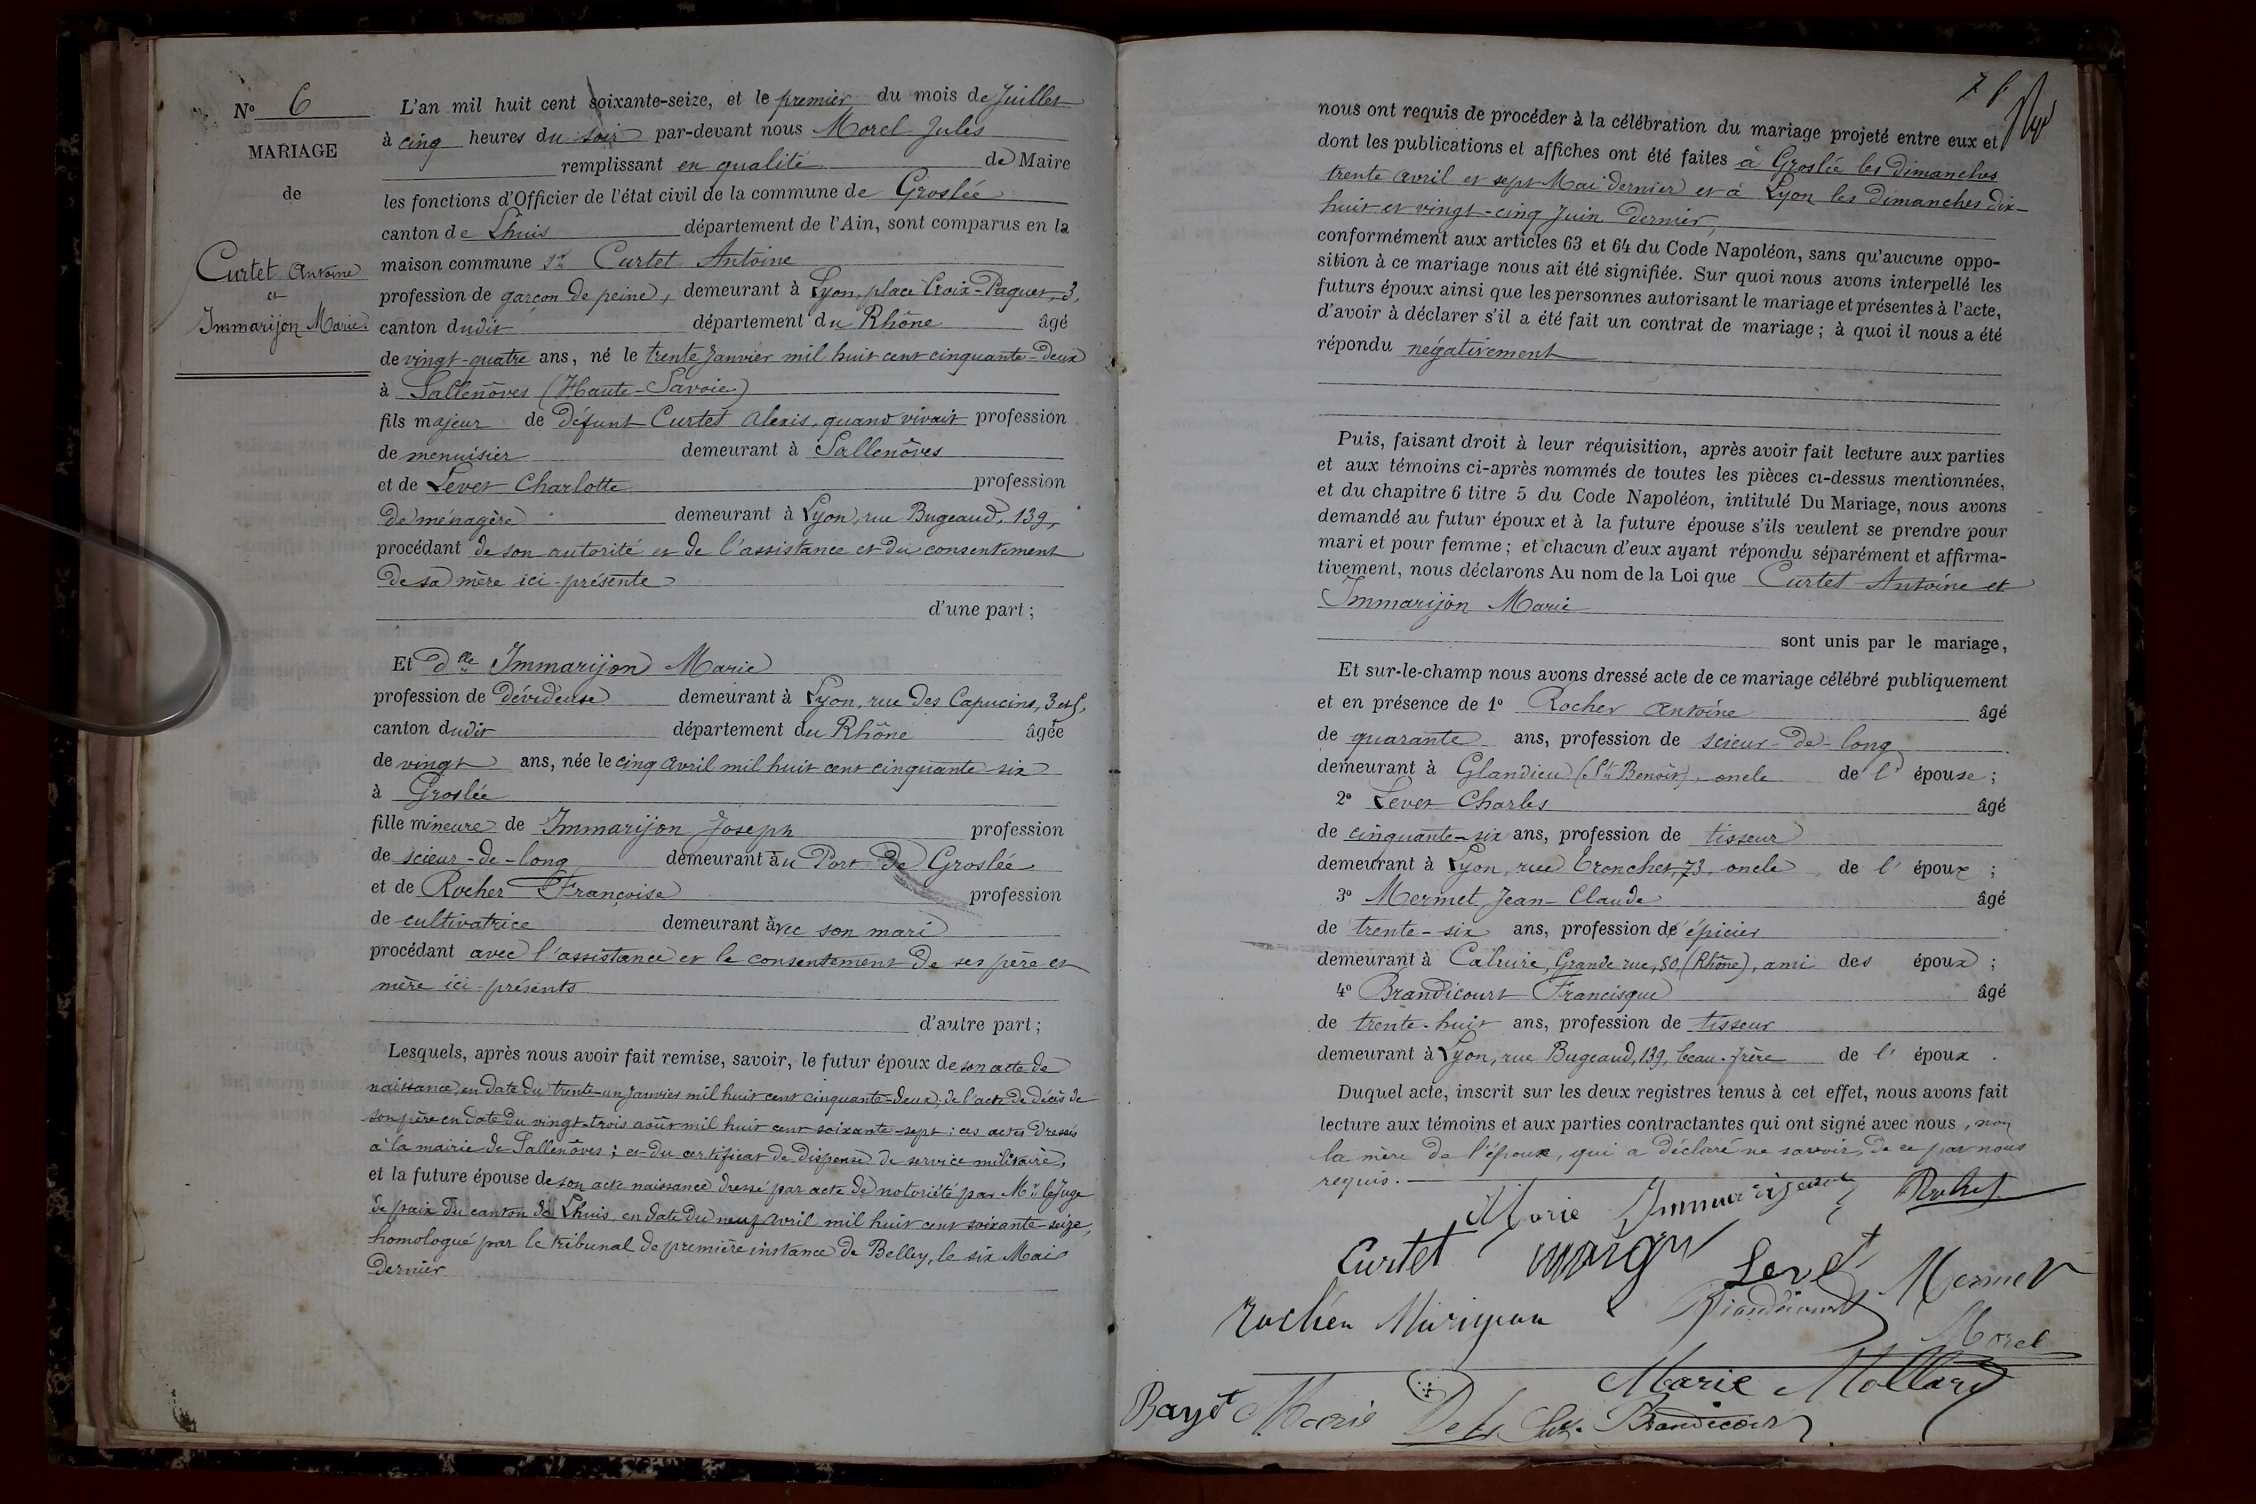 N° 6
MARIAGE
de
Curtet Antoine
et
Immarijon Marie
L'an mil huit cent soixante-seize, et le premier du mois de Juillet
à cinq heures du soir par-devant nous Morel Jules
remplissant en qualité de Maire
les fonctions d'Officier de l'état civil de la commune de Groslée
canton de Lhuis département de l'Ain, sont comparus en la
maison commune Sr Curtet Antoine
profession de garçon de peine, demeurant à Lyon, place Croix-Paquet, 3,
canton dudit département du Rhône âgé
de vingt-quatre ans, né le trente Janvier mil huit cent cinquante-deux
à Sallenôves (Haute-Savoie)
fils majeur de défunt Curtet Alexis, quand vivait profession
de menuisier demeurant à Sallenôves
et de Levet Charlotte profession
de ménagère demeurant à Lyon, rue Bugeaud, 139,
procédant de son autorité et de l'assistance et du consentement
de sa mère ici-présente
d'une part;
Et dlle Immarijon Marie
profession de dévideuse demeurant à Lyon, rue des Capucins, 3 et 5,
canton dudit département du Rhône âgée
de vingt ans, née le cinq avril mil huit cent cinquante-six
à Groslée
fille mineure de Immarijon Joseph profession
de scieur-de-long demeurant au Port de Groslée
et de Rocher Françoise profession
de cultivatrice demeurant avec son mari
procédant avec l'assistance et le consentement de ses père et
mère ici-présents
d'autre part;
Lesquels, après nous avoir fait remise, savoir, le futur époux de son acte de
naissance, en date du trente-un Janvier mil huit cent cinquante-deux; de l'acte de décès de
son père en date du vingt-trois août mil huit cent soixante-sept: ces actes dressés
à la mairie de Sallenôves; et du certificat de dispense de service militaire,
et la future épouse de son acte naissance dressé par acte de notoriété par Mr le Juge
de paix du canton de Lhuis, en date du neuf avril mil huit cent soixante-seize,
homologué par le tribunal de première instance de Belley, le six Mai
dernier
nous ont requis de procéder à la célébration du mariage projeté entre eux et
dont les publications et affiches ont été faites à Groslée les dimanches
trente avril et sept Mai dernier et à Lyon les dimanches dix-
huit et vingt-cinq Juin dernier,
conformément aux articles 63 et 64 du Code Napoléon, sans qu'aucune oppo-
sition à ce mariage nous ait été signifiée. Sur quoi nous avons interpellé les
futurs époux ainsi que les personnes autorisant le mariage et présentes à l'acte,
d'avoir à déclarer s'il a été fait un contrat de mariage; à quoi il nous a été
répondu négativement
Puis, faisant droit à leur réquisition, après avoir fait lecture aux parties
et aux témoins ci-après nommés de toutes les pièces ci-dessus mentionnées,
et du chapitre 6 titre 5 du Code Napoléon, intitulé Du Mariage, nous avons
demandé au futur époux et à la future épouse s'ils veulent se prendre pour
mari et pour femme; et chacun d'eux ayant répondu séparément et affirma-
tivement, nous déclarons Au nom de la Loi que Curtet Antoine et
Immarijon Marie
sont unis par le mariage,
Et sur-le-champ nous avons dressé acte de ce mariage célébré publiquement
et en présence de 1° Rocher Antoine âgé
de quarante ans, profession de scieur-de-long
demeurant à Glandieu (St Benoît), oncle de l'épouse;
2° Levet Charles âgé
de cinquante-six ans, profession de tisseur
demeurant à Lyon, rue Tronchet, 73, oncle de l'époux;
3° Mermet Jean-Claude âgé
de trente-six ans, profession d'épicier
demeurant à Caluire, Grande rue, 80 (Rhône), ami des époux;
4° Brandicourt Francisque âgé
de trente-huit ans, profession de tisseur
demeurant à Lyon, rue Bugeaud, 139, beau-frère de l'époux.
Duquel acte, inscrit sur les deux registres tenus à cet effet, nous avons fait
lecture aux témoins et aux parties contractantes qui ont signé avec nous, non
la mère de l'époux, qui a déclaré ne savoir, de ce par nous
requis.
Marie Immarijon Rocher
Curtet Levet Mermet
Brandicourt
Morel
Marie Mollard
Bayet Marie
Brandicourt